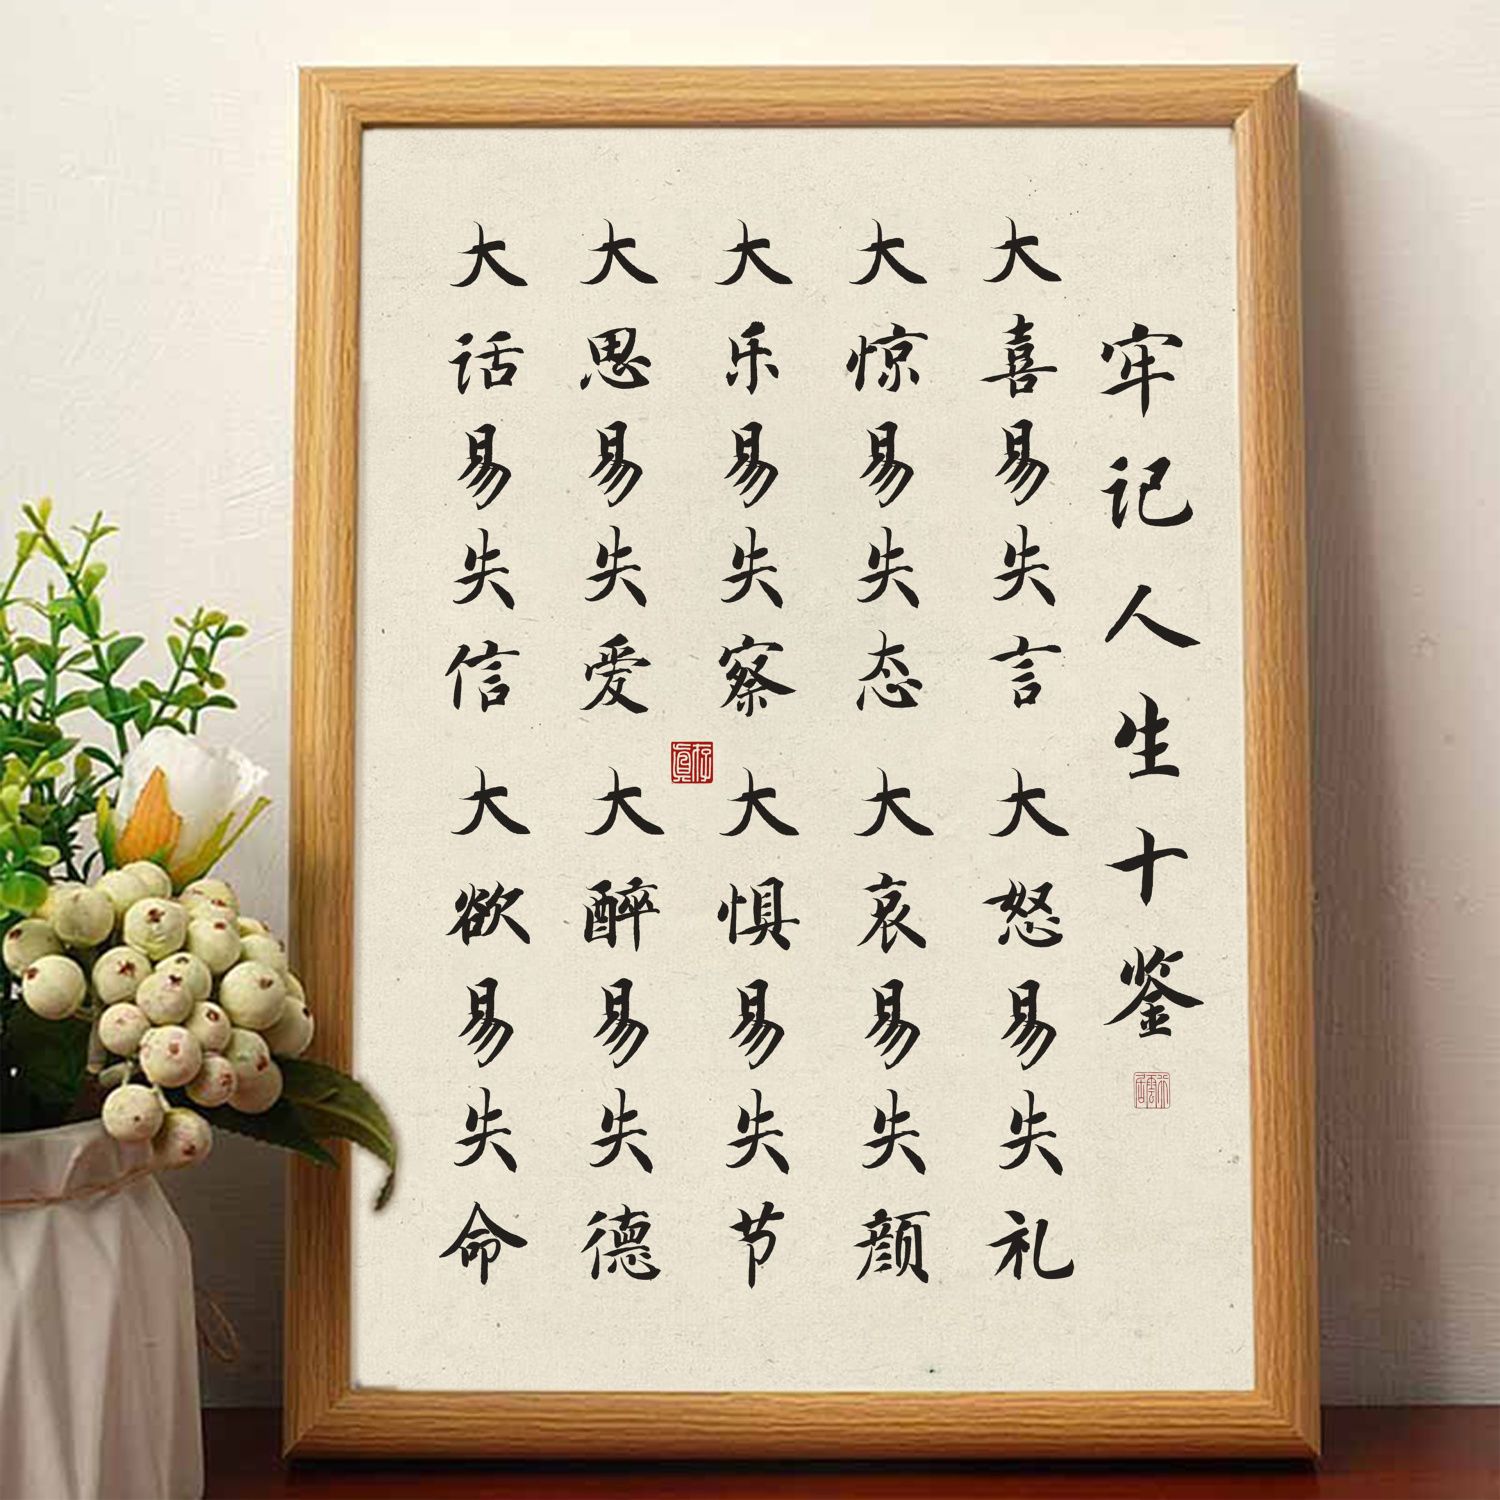 牢记人生十鉴
大喜易失言 大怒易失礼
大惊易失态 大哀易失颜
大乐易失察 大惧易失节
大思易失爱 大醉易失德
大话易失信 大欲易失命